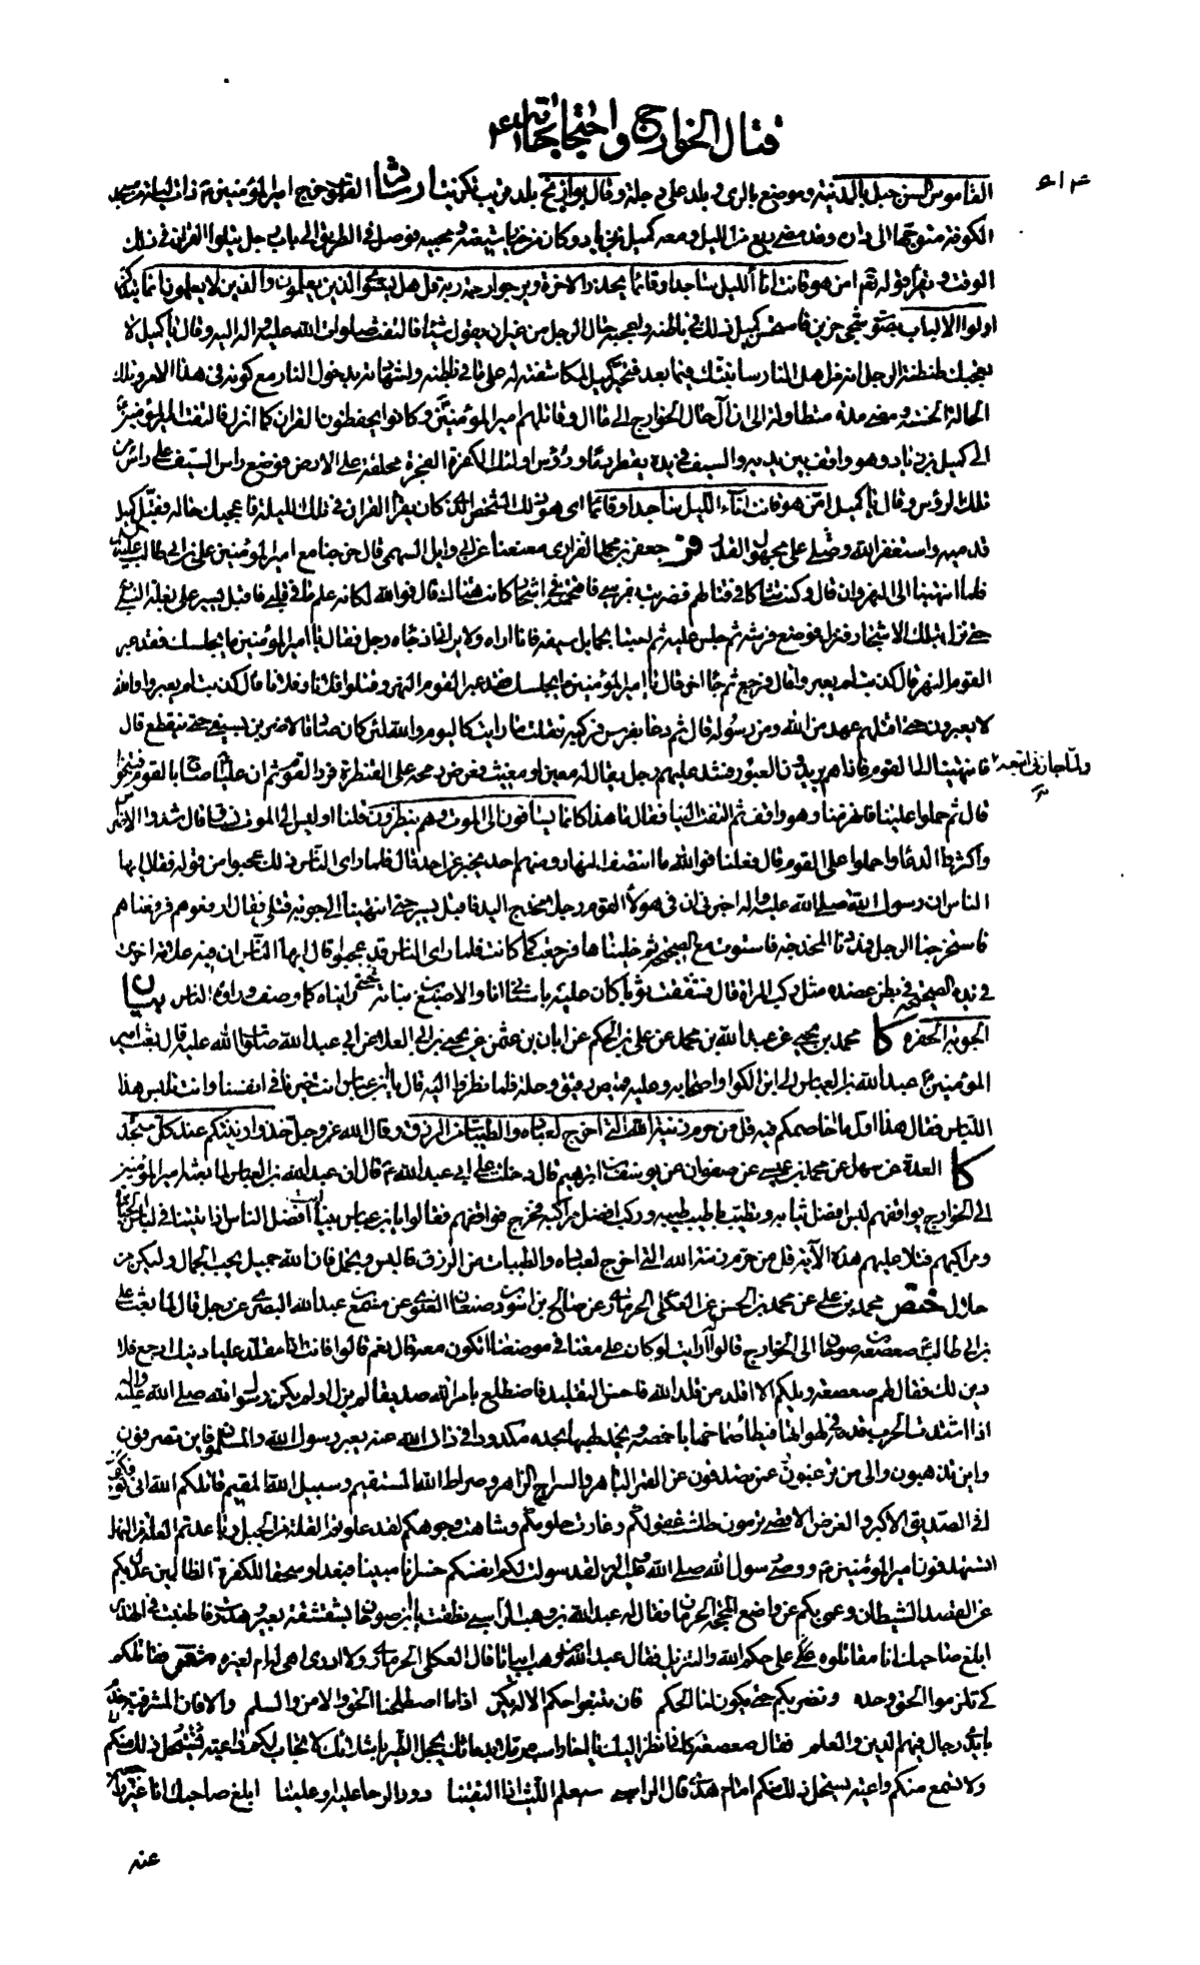 قتال الخوارج واحتجاجاته
٦١٤
القاموس السن جبل بالمدينة وموضع بالرى وبلد على دجلة وقال بوازيج بلد قرب تكريت ارشاد القلوب خرج امير المؤمنين ع ذات ليلة من مسجد
الكوفة متوجها الى داره وقد مضى ربع من الليل ومعه كميل بن زياد وكان من خيار شيعته ومحبيه فوصل فى الطريق الى باب رجل يتلوا القران فى ذلك
الوقت ويقرأ قوله تعم امن هو قانت اناء الليل ساجدا وقائما يحذر الاخرة ويرجوا رحمة ربه قل هل يستوى الذين يعلمون والذين لا يعلمون انما يتذكر
اولوا الالباب بصوت شجى حزين فاستحسن كميل ذلك فى باطنه واعجبه حال الرجل من غير ان يقول شيئا فالتفت صلوات الله عليه واله اليه وقال يا كميل لا
يعجبك طنطنة الرجل انه من اهل النار سانبئك فيما بعد فتحير كميل لمكاشفته له على ما فى باطنه ولشهادته بدخول النار مع كونه فى هذا الامر وتلك
الحالة الحسنة ومضى مدة متطاولة الى ان آل حال الخوارج الى ما آل وقاتلهم امير المؤمنين ع وكانوا يحفظون القران كما انزل فالتفت امير المؤمنين ع
الى كميل بن زياد وهو واقف بين يديه والسيف فى يده يقطر دما ورؤس اولئك الكفرة الفجرة محلقة على الارض فوضع راس السيف على راس من
تلك الرؤس وقال يا كميل امن هو قانت اناء الليل ساجدا وقائما اى هو ذلك الشخص الذى كان يقرأ القران فى تلك الليلة فاعجبك حاله فقبل كميل
قدميه واستغفر الله وصلى على مجهول القدر فر جعفر بن محمد الفزارى معنعنا عن ابى وايل السهمى قال خرجنا مع امير المؤمنين على بن ابى طالب عليه
فلما انتهينا الى النهروان قال وكنت شاكا فى قتالهم فضربت بفرسى فاقحمته فى اشجار كانت هناك قال فوالله لكانه علم ما فى قلبى فاقبل يسير على بغلة النبى ص
حتى نزل بتلك الاشجار فنزل فوضع فرشه ثم جلس عليه ثم احتبى بحمايل سيفه فانا اراه ولا يرانى اذ جاءه رجل فقال يا امير المؤمنين ما يجلسك فقد عبر
القوم النهر قال كذبت لم يعبروا قال فرجع ثم جاء اخر فقال يا امير المؤمنين ما يجلسك فقد عبر القوم النهر وقتلوا فلانا وفلانا قال كذبت لم يعبروا والله
لا يعبرون حتى اقتلهم عهد من الله ومن رسوله قال ثم دعا بفرس فركبه فقلت ما رايت كاليوم والله لئن كان صادقا لاضربن بسيفى حتى ينقطع قال
فلما جازنى اتبعته فانتهينا الى القوم فاذا هم يريدون العبور فشد عليهم رجل يقال له معين او مغيث فعرض رمحه على القنطرة فرد القوم ثم ان عليا ع صاح بالقوم فتنحوا
قال ثم حملوا علينا فانهزمنا وهو واقف ثم التفت الينا فقال ما هذا كانما يساقون الى الموت وهم ينظرون قلنا اوليس الى الموت نساق قال شدوا الاضراس
واكثروا الدعاء واحملوا على القوم قال ففعلنا فوالله ما انتصف النهار ومنهم احد يخبر عن احد قال فلما راى الناس ذلك عجبوا من قوله فقال ايها
الناس ان رسول الله صلى الله عليه واله اخبرنى ان فى هؤلاء القوم رجل مخدج اليد فاقبل يسير حتى انتهينا الى جوبة قتلى فقال ارفعوهم فرفعناهم
فاستخرجنا الرجل فمددنا المخدجة فاستوت مع الصحيحة ثم خليناها فرجعت كما كانت فلما راى الناس قد عجبوا قال ايها الناس ان فيه علامة اخرى
فى يده الصحيحة فى بطن عضده مثل ركب المراة قال فشققت ثوبا كان عليه باسنانى انا والاصبغ بن نباتة حتى رايناه كما وصف وراه الناس بيان
الجوبة الحفرة كا محمد بن يحيى عن عبد الله بن محمد عن على بن الحكم عن ابان بن عثمن عن يحيى بن ابى العلا عن ابى عبد الله صلوات الله عليه قال بعث امير
المؤمنين ع عبد الله بن العباس الى ابن الكوا واصحابه وعليه قميص رقيق وحلة فلما نظروا اليه قالوا يا ابن عباس انت خيرنا فى انفسنا وانت تلبس هذا
اللباس فقال هذا اول ما اخاصمكم فيه قل من حرم زينة الله التى اخرج لعباده والطيبات من الرزق وقال الله عز وجل خذوا زينتكم عند كل مسجد
كا العدة عن سهل عن محمد بن عيسى عن صفوان عن يوسف بن ابراهيم قال دخلت على ابى عبد الله ع قال ان عبد الله بن العباس لما بعثه امير المؤمنين
الى الخوارج يوافقهم لبس افضل ثيابه وتطيب باطيب طيبه وركب افضل مراكبه فخرج فوافقهم فقالوا يا بن عباس بينا انت افضل الناس اذ اتيتنا فى لباس الجبابرة
ومراكبهم فتلا عليهم هذه الآية قل من حرم زينة الله التى اخرج لعباده والطيبات من الرزق فالبس وتجمل فان الله جميل يحب الجمال وليكن من
حلال ختص محمد بن على عن محمد بن الحسن عن العكلى الحرمازى عن صالح بن اسود بن صنعان الغنوى عن مسمع بن عبد الله البصرى عن رجل قال لما بعث على
بن ابى طالب ع صعصعة بن صوحان الى الخوارج قالوا له ارايت لو كان على معنا فى موضعنا اتكون معه قال نعم قالوا فانت اذا مقلد عليا دينك ارجع فلا
دين لك فقال لهم صعصعة ويلكم الا اقلد من قلد الله فاحسن التقليد فاضطلع بامر الله صديقا لم يزل اولم يكن رسول الله صلى الله عليه واله
اذا اشتدت الحرب قدمه فى لهواتها فيطأ صماخها باخمصه ويخمد لهبها بحده مكدودا فى ذات الله عنه يعبر رسول الله والمسلمون فاين تصرفون
واين تذهبون والى من ترغبون وعمن تصدفون عن القمر الباهر والسراج الزاهر وصراط الله المستقيم وسبيل الله المقيم قاتلكم الله انى تؤفكون
افى الصديق الاكبر والغرض الاقصى ترمون طاشت عقولكم وغارت حلومكم وشاهت وجوهكم لقد علوتم القلة من الجبل وباعدتم العلة من النهل
اتستهدفون امير المؤمنين ع ووصى رسول الله صلى الله عليه واله لقد سولت لكم انفسكم خسرانا مبينا فبعدا وسحقا للكفرة الظالمين عدل بكم
عن القصد الشيطان وعمى بكم عن واضح المحجة الحرمان فقال له عبد الله بن وهب الراسبى نطقت يا ابن صوحان بشقشقة بعير وهدرت فاطنبت فى الهدير
ابلغ صاحبك انا مقاتلوه على حكم الله والتنزيل فقال عبد الله بن وهب ابياتا قال العكلى الحرمازى ولا ادرى اهى له ام لغيره شعر نقاتلكم
كى تلزموا الحق وحده ونضربكم حتى يكون لنا الحكم فان تبتغوا حكم الاله يكن اذا ما اصطلحنا الحق والامن والسلم والا فان المشرفية
بايدى رجال فيهم الدين والعلم فقال صعصعة كانى انظر اليك يا اخا راسب مترملا بدمائك يحجل الطير باشلائك لا تجاب لكم داعية يستحل ذلك منكم
ولا تسمع منكم واعية يستحل ذلك منكم امام هدى قال الراسبى سيعلم الليث اذا التقينا دور الرحا عليه او علينا ابلغ صاحبك انا غير راجعين
عنه